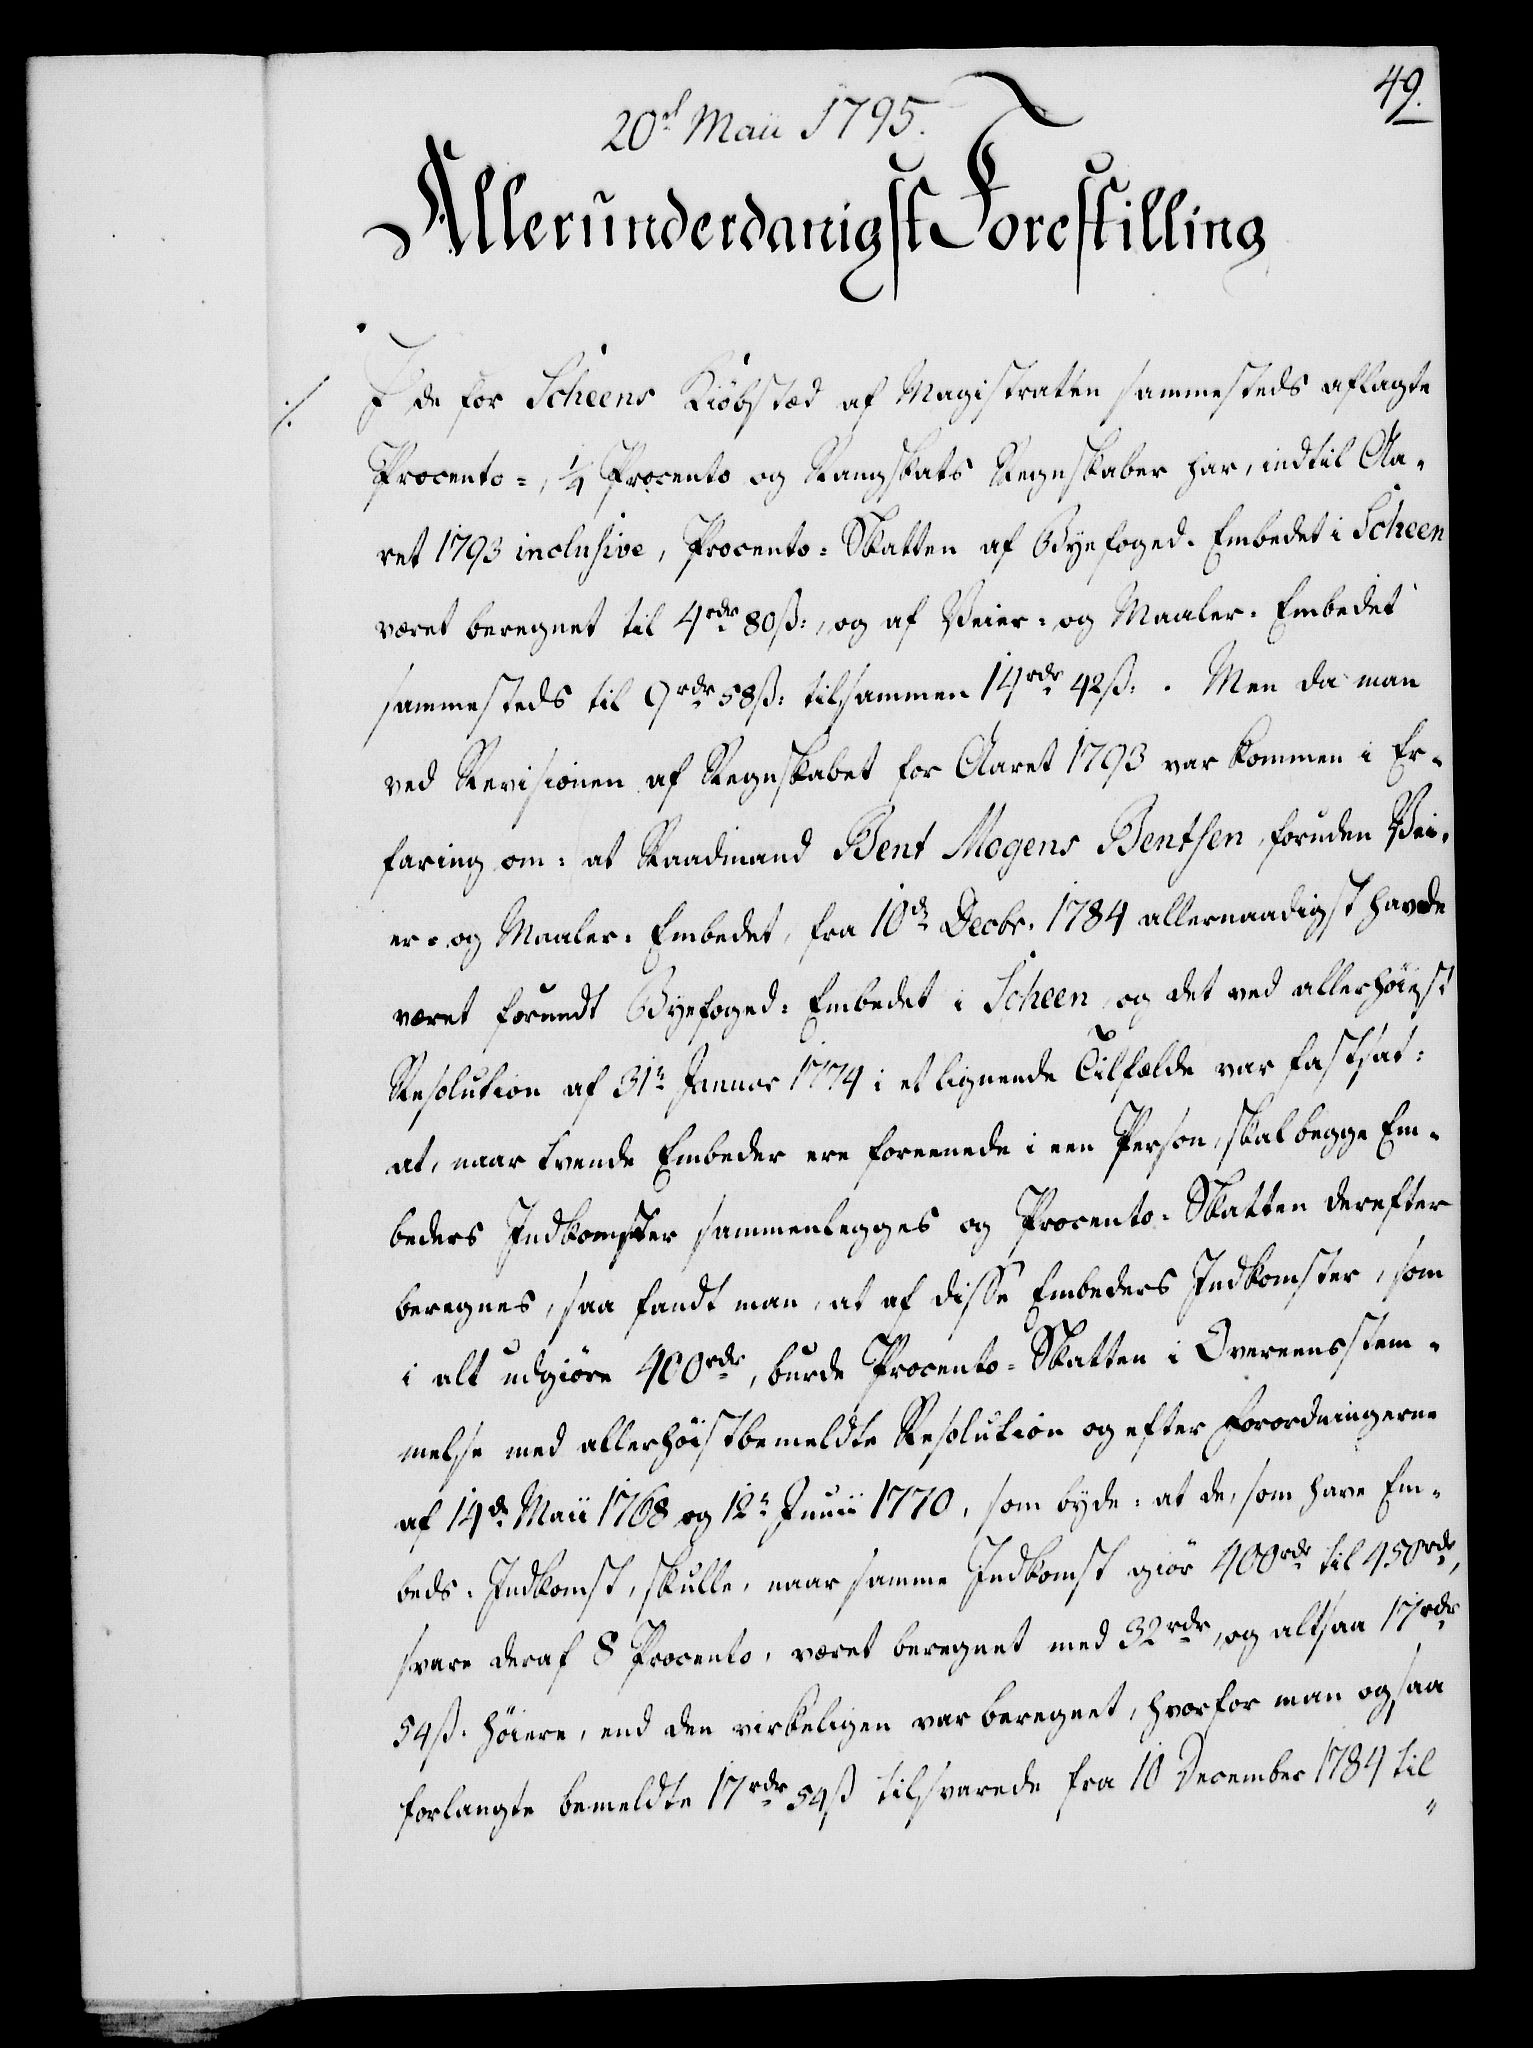 49.
20d Maii 1795.
Allerunderdanigst Forestilling
⁒ I de for Scheens Kiöbstæd af Magistraten sammesteds aflagte
Procento-, ¼ Procento og Rangskats Regnskaber har, indtil Aa-
ret 1793 inclusive, Procento-Skatten af Byefoged-Embedet i Scheen
været beregnet til 4rdr 80ß:, og af Veier- og Maaler-Embedet
sammesteds til 9rdr 58ß: tilsammen 14rdr 42ß: . Men da man
ved Revisionen af Regnskabet for Aaret 1793 var kommen i Er-
faring om: at Raadmand Bent Mogens Bentsen, foruden Vei-
er- og Maaler-Embedet, fra 10de Decbr. 1784 allernaadigst havde
været forundt Byefoged-Embedet i Scheen, og det ved allerhöiest
Resolution af 31te Januar 1774 i et lignende Tilfælde var fastsat:
at, naar tvende Embeder ere foreenede i een Person, skal begge Em-
beders Indkomster sammenlegges og Procento-Skatten derefter
beregnes, saa fandt man, at af disse Embeders Indkomster, som
i alt udgiöre 400rdr, burde Procento-Skatten i Overeensstem-
melse med allerhöistbemeldte Resolution og efter Forordningerne
af 14de Maii 1768 og 12te Junii 1770, som byde: at de, som have Em-
beds-Indkomst, skulle, naar samme Indkomst giör 400rdr til 450rdr,
svare deraf 8 Procento, været beregnet med 32rdr, og altsaa 17rdr
54ß. höiere, end den virkeligen var beregnet, hvorfor man ogsaa
forlangte bemeldte 17rdr 54ß tilsvarede fra 10 December 1784 til
"